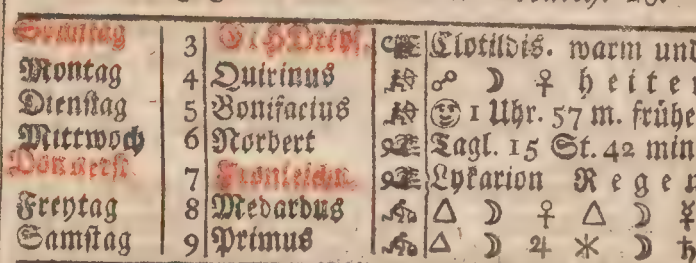 Sonntag 3 Clotildis. warm und
Montag 4 Quirinus ☍ ☽ ♀ heiter
Dienstag 5 Bonifacius 1 Uhr. 57 m. frühe
Mittwoch 6 Norbert Tagl. 15 St. 42 min
Donnerst. 7 Fronleichn. Lykarion Regen
Freytag 8 Medardus △ ☽ ♀ △ ☽ ☿
Samstag 9 Primus △ ☽ ♃ ⚹ ☽ ♄